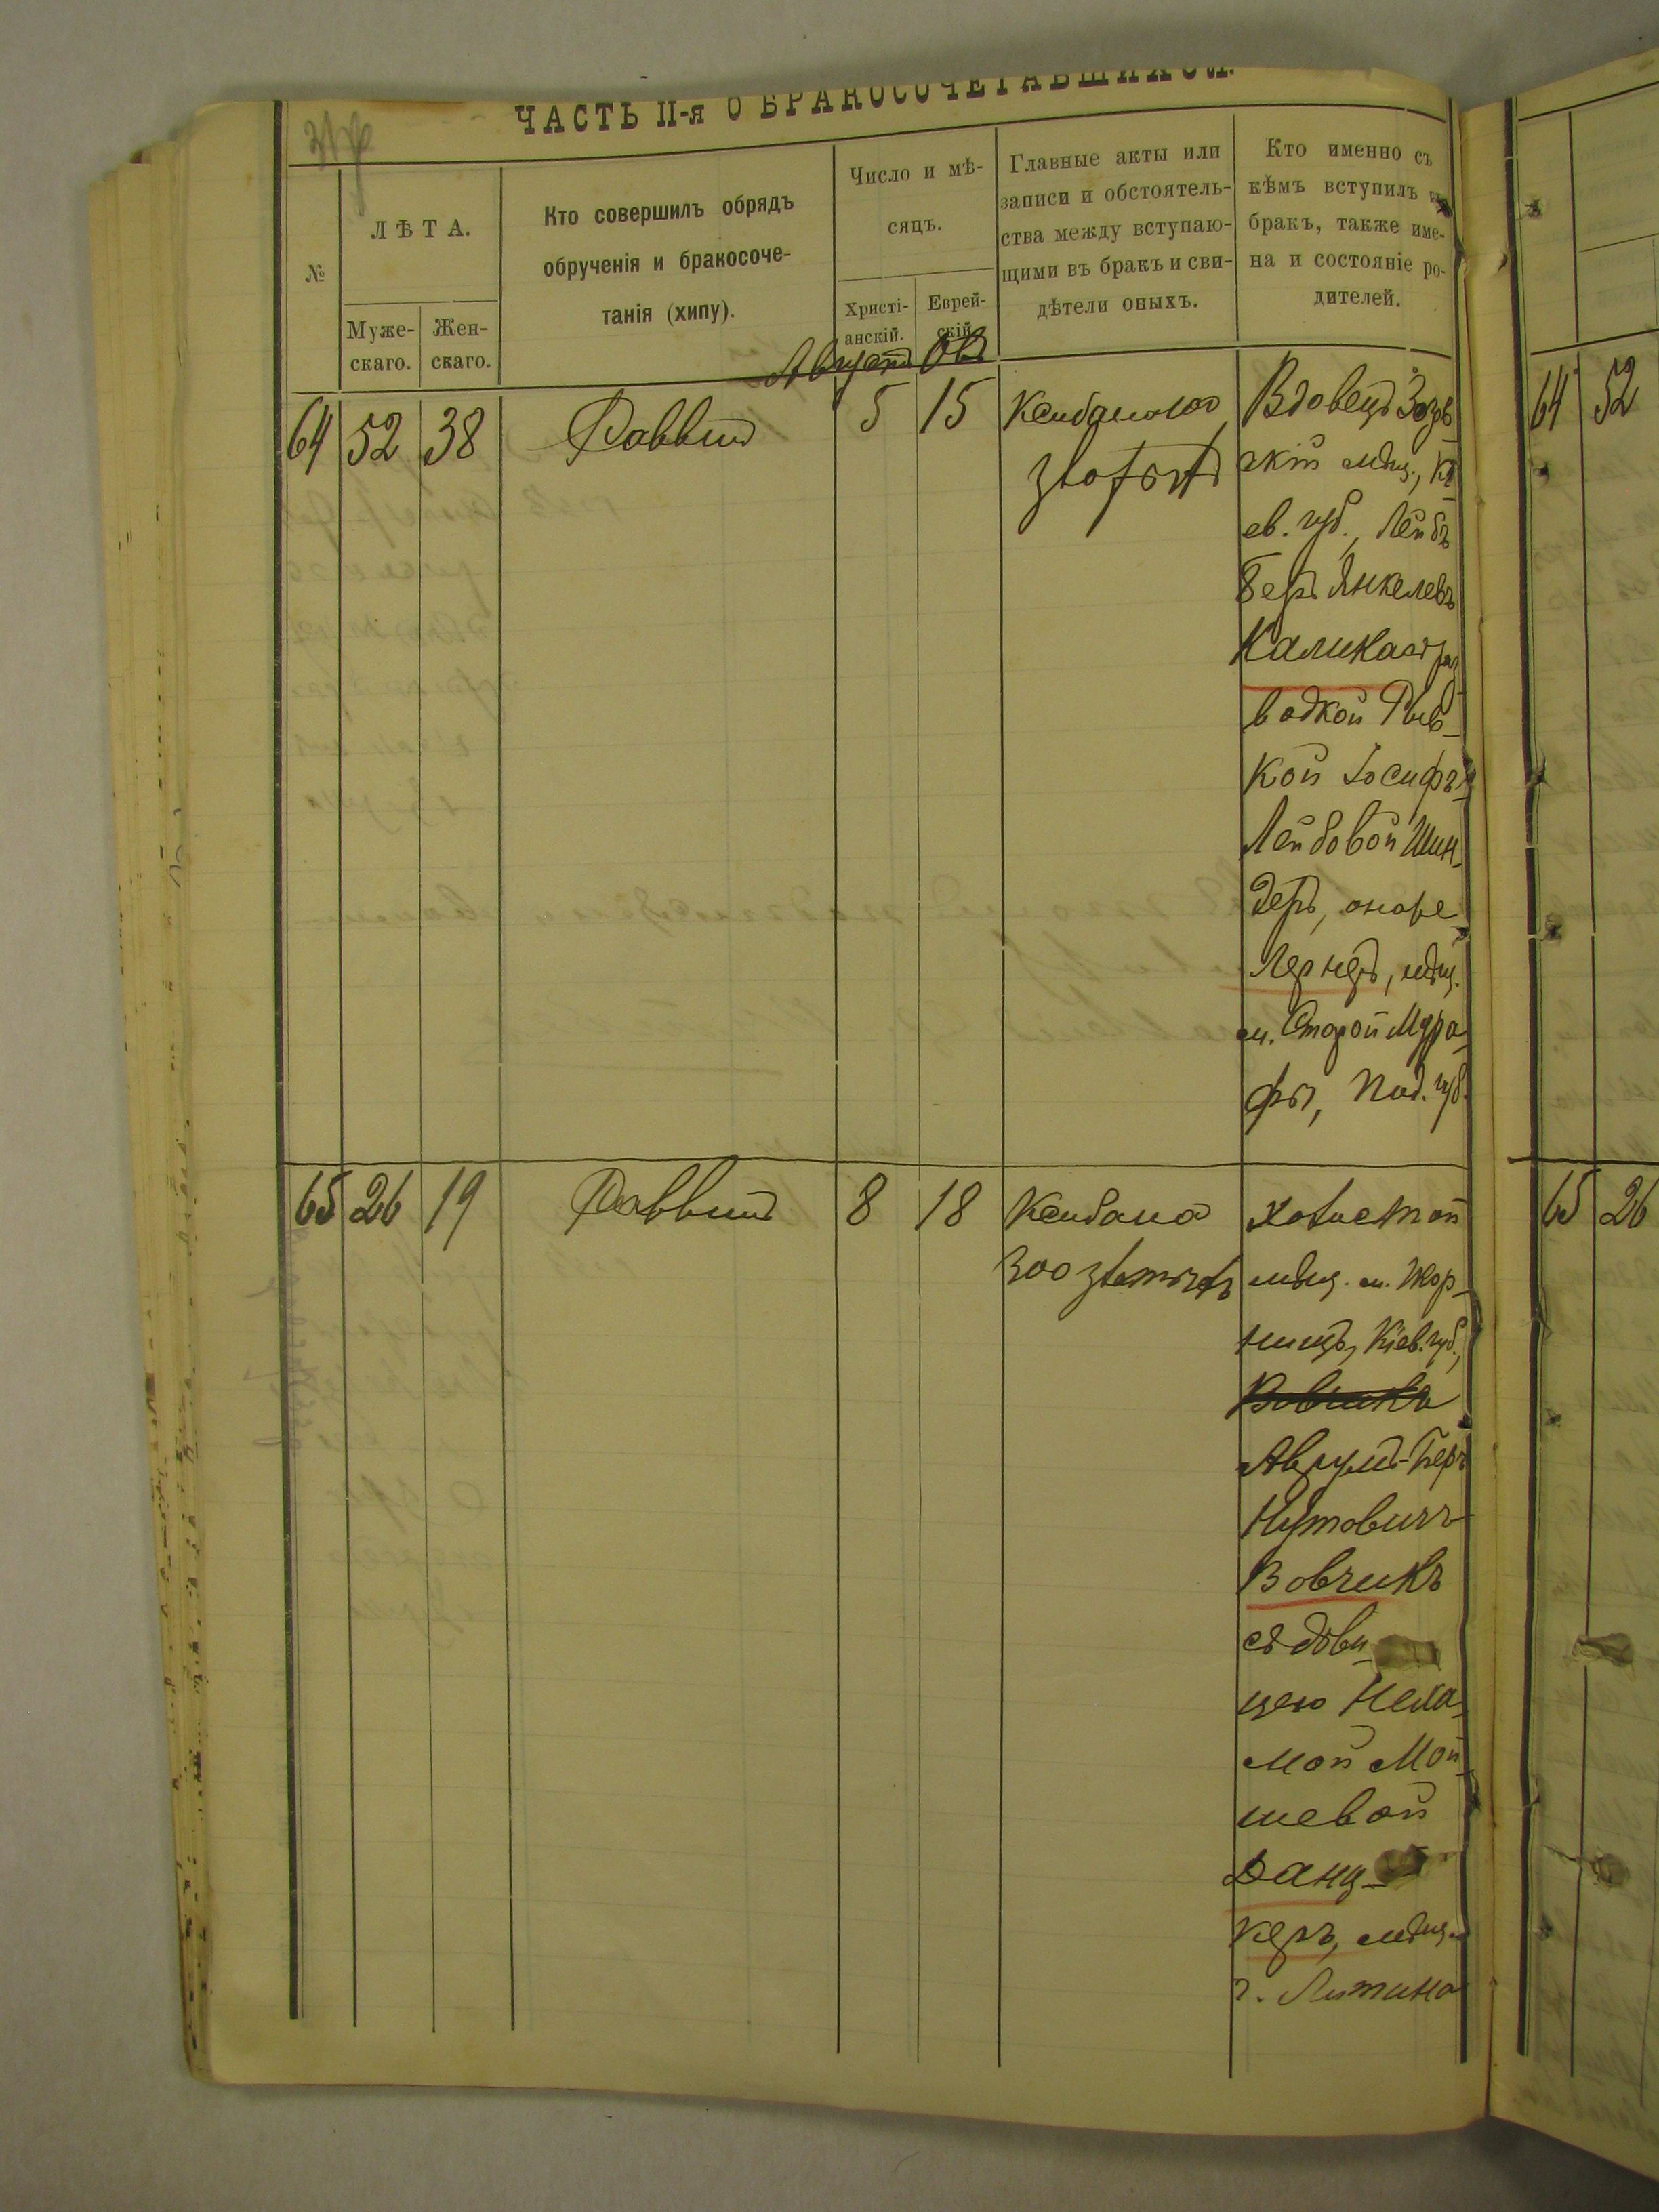 ЧАСТЬ II-я О БРАКОСОЧЕТАВШИХСЯ.
№
ЛѢТА.
Муже-
скаго.
Жен-
скаго.
Кто совершилъ обрядъ
обрученія и бракосоче-
танія (хипу).
Число и мѣ-
сяцъ.
Христі-
анскій.
Еврей-
скій.
Главные акты или
записи и обстоятель-
ства между вступаю-
щими въ бракъ и сви-
дѣтели оныхъ.
Кто именно съ
кѣмъ вступилъ въ
бракъ, также име-
на и состояніе ро-
дителей.
Августъ Овъ
64 52 38 Раввинъ 5 15
Вдовецъ
мѣщ., Кі
ев. губ., Лейбъ
Беръ Янкелевъ
Каликас
вдовой Рыв-
кой Іосифъ-
Лейбовой Шин-
деръ, онаже
Лернеръ, мѣщ.
м. Старой Мура-
фы, Под. губ.
65 26 19 Раввинъ 8 18
300
холостой
мѣщ. м. Жор-
нищъ, Кіев. губ.,
Вовчикъ
Аврумъ-Беръ
Нутовичъ
Вовчикъ
съ дѣви-
цею Неха-
мой Мой-
шевой
Данц-
керъ, мѣщ.
г. Литина
64 52
65 26